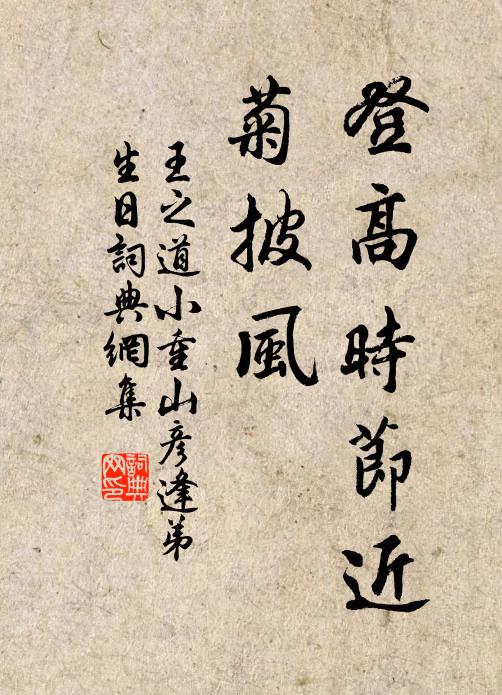 登高時節近
菊披風
王之道小重山彥逢弟
生日詞典網集
詞典
网印